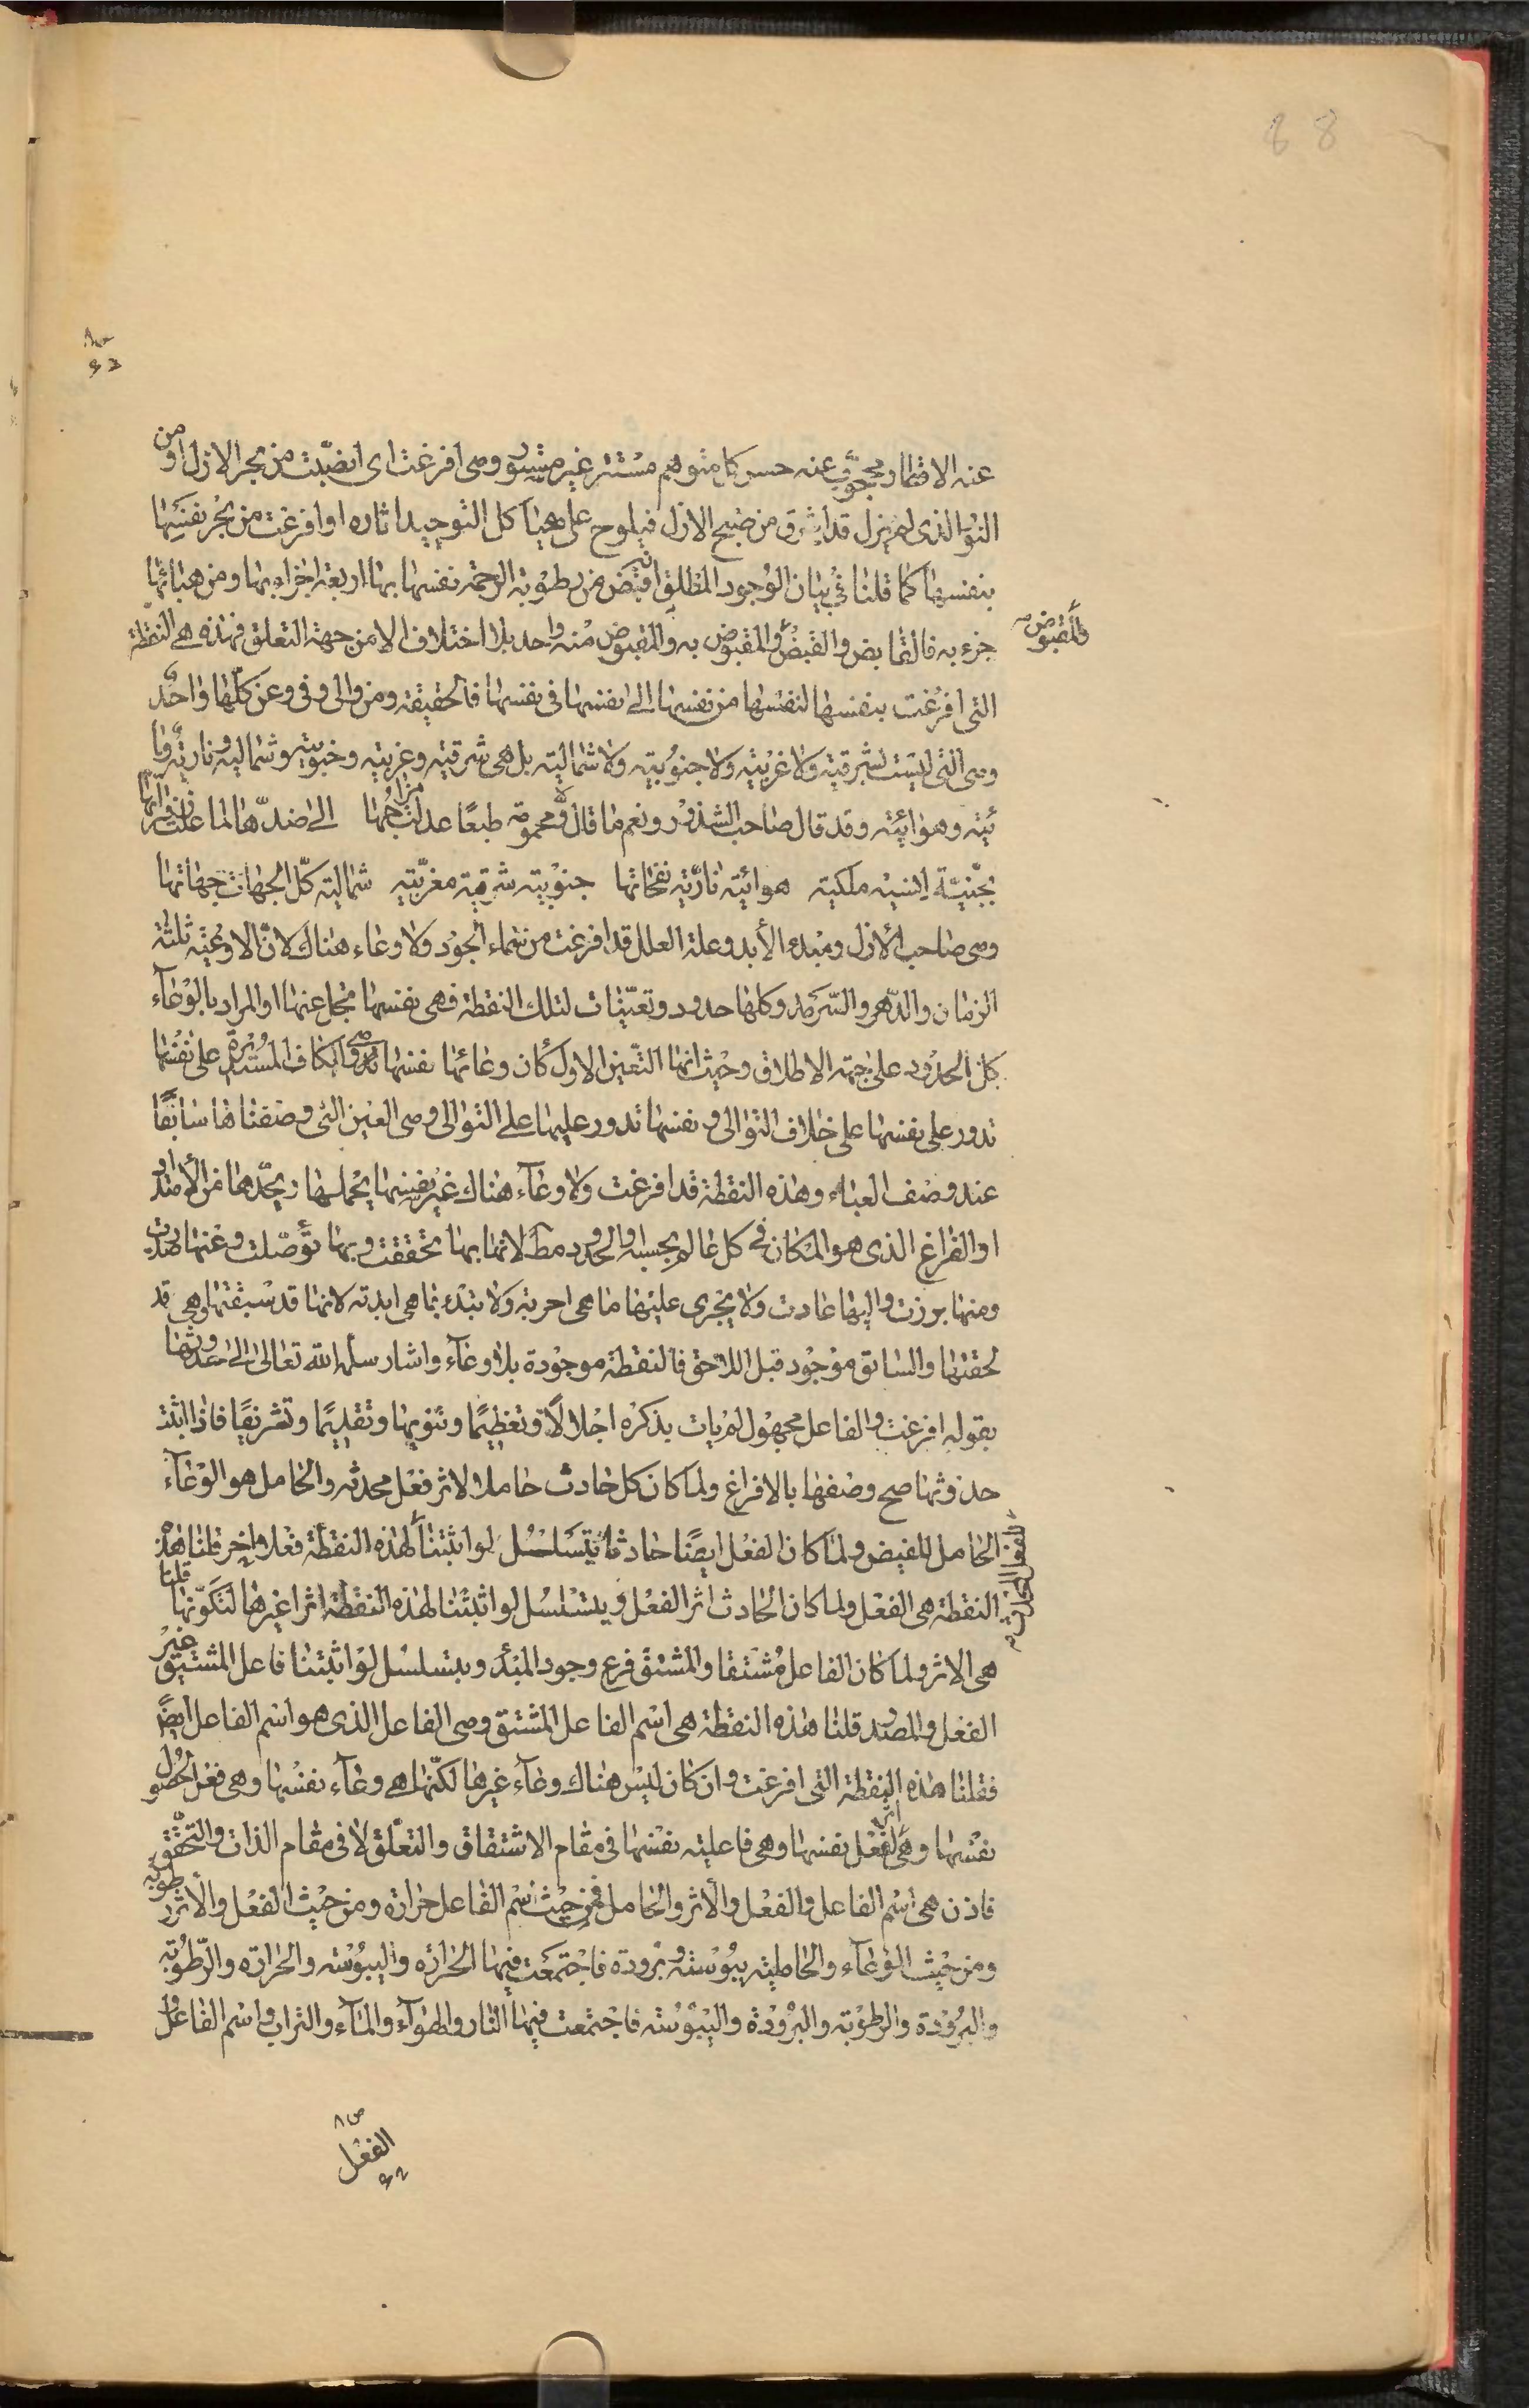 88
عنه الاقطار ومحجوب عنه حس كل متوهم مستتر غير مستور وهي افرغت اى انصبّت من بحر الازل او من
النور الذى لم يزل قد اشرق من صبح الازل فيلوح على هياكل التوحيد اثاره او افرغت من بحر نفسها
بنفسها كما قلنا في بيان الوجود المطلق انه قبض من رطوبة الرحمة نفسها بها اربعة اجزاء بها ومن هبائها
جزء به فالقابض والقبض والمقبوض به والمقبوض منه واحد بلا اختلاف الا من جهة التعلق فهذه هى النقطة
والمقبوض
التى افرغت بنفسها لنفسها من نفسها الى نفسها فى نفسها فالحقيقة ومن والى وفى وعن كلّها واحد
وهى التى ليست شرقية ولا غربية ولا جنوبية ولا شمالية بل هى شرقية وغربية وجنوبية وشمالية ونارية وما
ئية وهوائية وقد قال صاحب الشذور ونعم ما قال ومحمومة طبعًا عدلت مزاجها الى ضدّها لما علت زفراتها
بجنيّة انسية ملكية هوائية نارية نفحاتها جنوبية شرقية مغربية شمالية كلّ الجهات جهاتها
وهى صاحب الازل ومبدء الأبد وعلة العلل قد افرغت من سماء الجود ولا وعاء هناك لانّ الاوعية ثلثة
الزمان والدّهر والسّرمد وكلها حدود وتعيّنات لتلك النقطة فهى نفسها منحل عنها او المراد بالوعآء
كل الحدود على جهة الاطلاق وحيث انها التعّين الاول كان وعائها نفسها وهى الكاف المستديرة على نفسها
تدور على نفسها على خلاف التوالى ونفسها تدور عليها على التوالى وهى العين التى وصفناها سابقًا
عند وصف العباء وهذه النقطة قد افرغت ولا وعآء هناك غير نفسها يحملها ويحدّها من الامتداد
او الفراغ الذى هو المكان فى كل عالم بحسبه والحدود مط لانها بها تحققت وبها تأصّلت وعنها صدرت
ومنها برزت واليها عادت ولا يجرى عليها ما هى اجرته ولا يبتدء بما هى ابدته لانها قد سبقتها وهى قد
لحقتها والسابق موجود قبل اللاحق فالنقطة موجودة بلا وعآء واشار سلمه الله تعالى الى حدوثها
بقوله افرغت والفاعل مجهول لم يات بذكره اجلالًا وتعظيمًا وتنويها وتقديمًا وتشريفًا فاذا اثبت
حدوثها صح وصفها بالافراغ ولما كان كل حادث حاملا لاثر فعل محدثه والحامل هو الوعآء
الحامل للفيض ولما كان الفعل ايضًا حادثا يتسلسل لو اثبتنا لهذه النقطة فعلا واخر قلنا هذه
النقطة هى الفعل ولما كان الحادث اثر الفعل ويتسلسل لو اثبتنا لهذه النقطة اثرا غيرها قلنا
هى الاثر ولما كان الفاعل مشتقا والمشتق فرع وجود المبدأ ويتسلسل لو اثبتنا فاعل المشتق غير
الفعل والمصدر قلنا هذه النقطة هى اسم الفاعل المشتق وهى الفاعل الذى هو اسم الفاعل ايضا
فقلنا هذه النقطة التى افرغت وان كان ليس هناك وعآء غيرها لكنّها هى وعآء نفسها وهى فعل لحصول
نفسها وهى اثر لفعل نفسها وهى فاعلية نفسها فى مقام الاشتقاق والتعلّق لا فى مقام الذات والتحقّق
فاذن هى اسم الفاعل والفعل والاثر والحامل فمن حيث اسم الفاعل حرارة ومن حيث الفعل والاثر رطوبة
ومن حيث الوعآء والحاملية يبوسة وبرودة فاجتمعت فيها الحرارة واليبوسة والحرارة والرّطوبة
والبرودة والرطوبة والبرودة واليبوسة فاجتمعت فيها النار والهوآء والمآء والتراب واسم الفاعل
الفعل